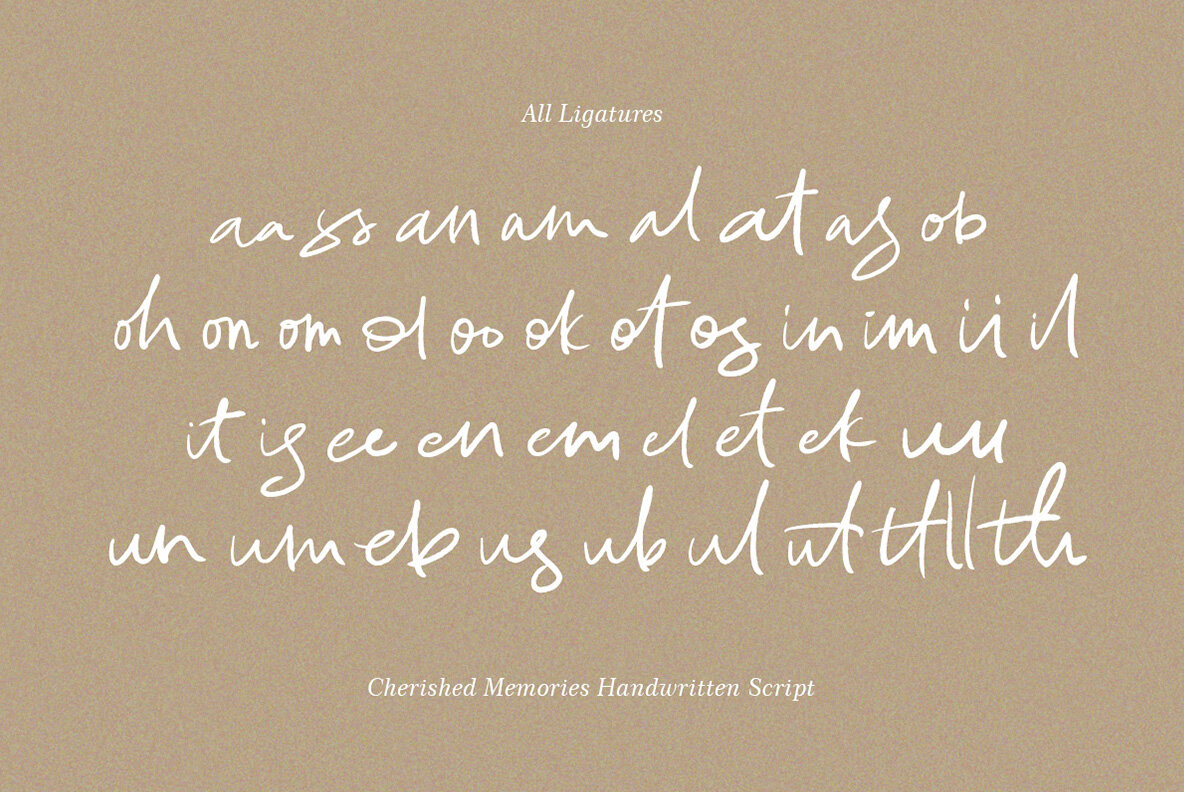 All Ligatures
aa ss an am al at as ob
oh on om ol oo ok ot os in im ii il
it is ee en em el et ek uu
un um eb us ub ul ut tt ll th
Cherished Memories Handwritten Script